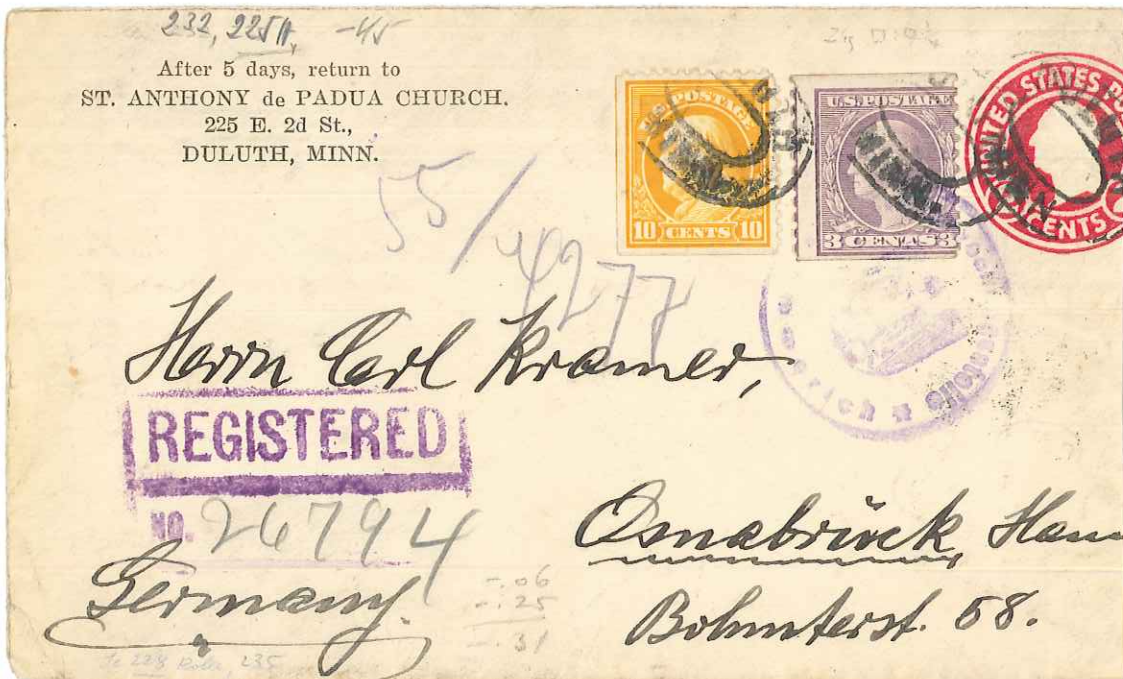 232, 225A, -45
After 5 days, return to
ST. ANTHONY de PADUA CHURCH.
225 E. 2d St.,
DULUTH, MINN.
U.S. POSTAGE
10 CENTS 10
U.S. POSTAGE
3 CENTS 3
UNITED STATES PO
CENTS
MINN.
MINN.
55/
4277
Herrn Carl Kramer,
REGISTERED
NO. 26794
Osnabrück, Han
Germany.
Bohmterst. 58.
-.06
-.25
-.31